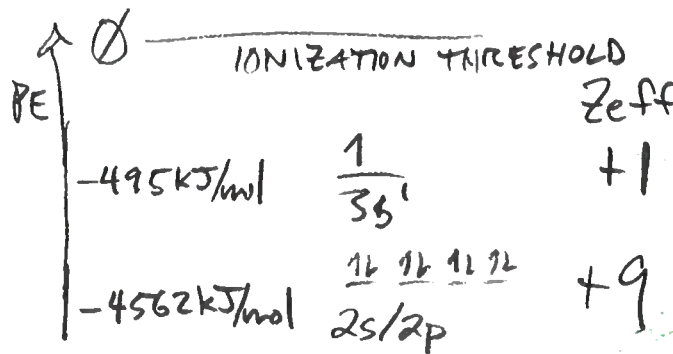 Ø IONIZATION THRESHOLD
PE Zeff
-495kJ/mol 1 +1
3s¹
-4562kJ/mol 1L 1L 1L 1L +9
2s/2p